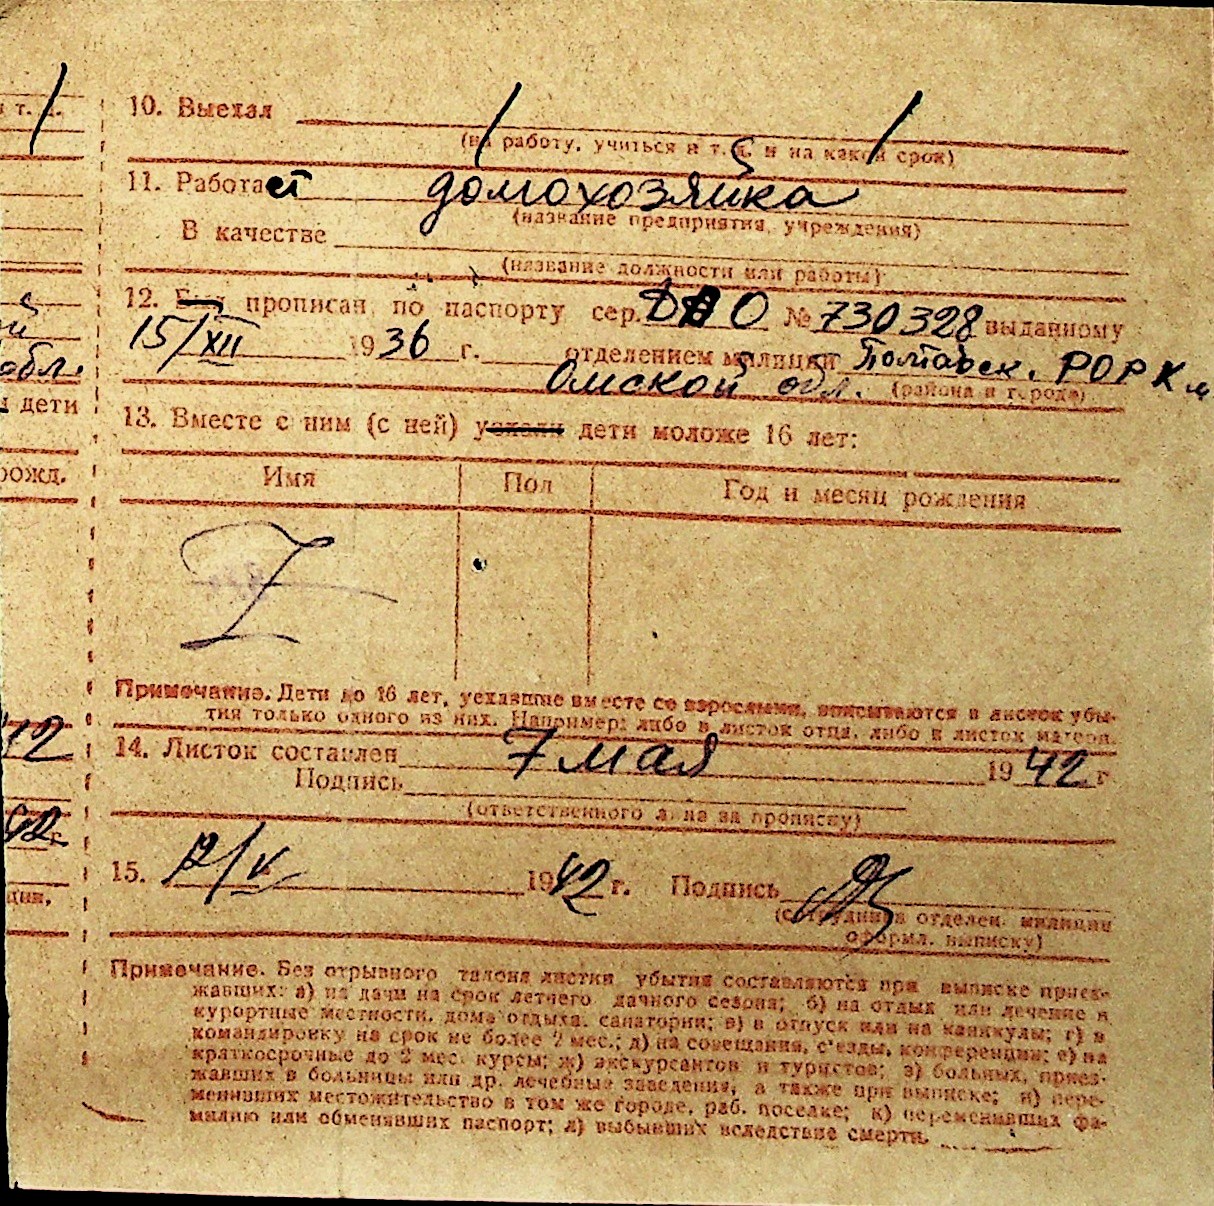 10. Выехал
(на работу, учиться и т. д. и на какой срок)
11. Работает домохозяйка
(название предприятия, учреждения)
В качестве
(название должности или работы)
12. Был прописан по паспорту сер. № 730328 выданному
15/XII 1936 г. отделением милиции Полтавск. РОРКМ
Омской обл. (района и города)
13. Вместе с ним (с ней) уехали дети моложе 16 лет:
Имя Пол Год и месяц рождения
Примечание. Дети до 16 лет, уехавшие вместе со взрослыми, вписываются в листок убы-
тия только одного из них. Например: либо в листок отца, либо в листок матери.
14. Листок составлен 7 мая 1942 г
Подпись
(ответственного лица за прописку)
15. 1942 г. Подпись
(сотрудников отделен. милиции
оформл. выписку)
Примечание. Без отрывного талона листки убытия составляются при выписке приез-
жавших: а) на дачи на срок летнего дачного сезона; б) на отдых или лечение в
курортные местности, дома отдыха, санатории; в) в отпуск или на каникулы; г) в
командировку на срок не более 2 мес.; д) на совещания, с'езды, конференции; е) на
краткосрочные до 2 мес. курсы; ж) экскурсантов и туристов; з) больных, приез-
жавших в больницы или др. лечебные заведения, а также при выписке; и) пере-
менивших местожительство в том же городе, раб. поселке; к) переменивших фа-
милию или обменявших паспорт; л) выбывших вследствие смерти.
т. д.
обл.
дети
рожд.
42